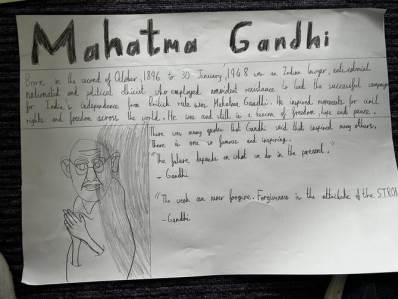 Mahatma Gandhi
Born in the second of October, 1896 to 30 January, 1948 was an Indian lawyer, anti-colonial
nationalist and political ethicist who employed nonviolent resistance to lead the successful campaign
for India's independence from British rule was Mahatma Gandhi. He inspired movements for civil
rights and freedom across the world. He was and still is a beacon of freedom, hope and peace.
There was many quotes that Gandhi said that inspired many others,
There is one so famous and inspiring.
"The future depends on what we do in the present."
- Gandhi
"The weak can never forgive. Forgiveness is the attribute of the STRON
- Gandhi